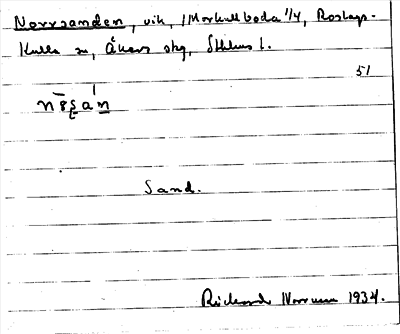 Norrsanden, vik, /Morkullboda 1/4, Roslags-
Kulla sn, Åkers skg, Sthlms l.
51
Sand.
Rickard Norrman 1934.